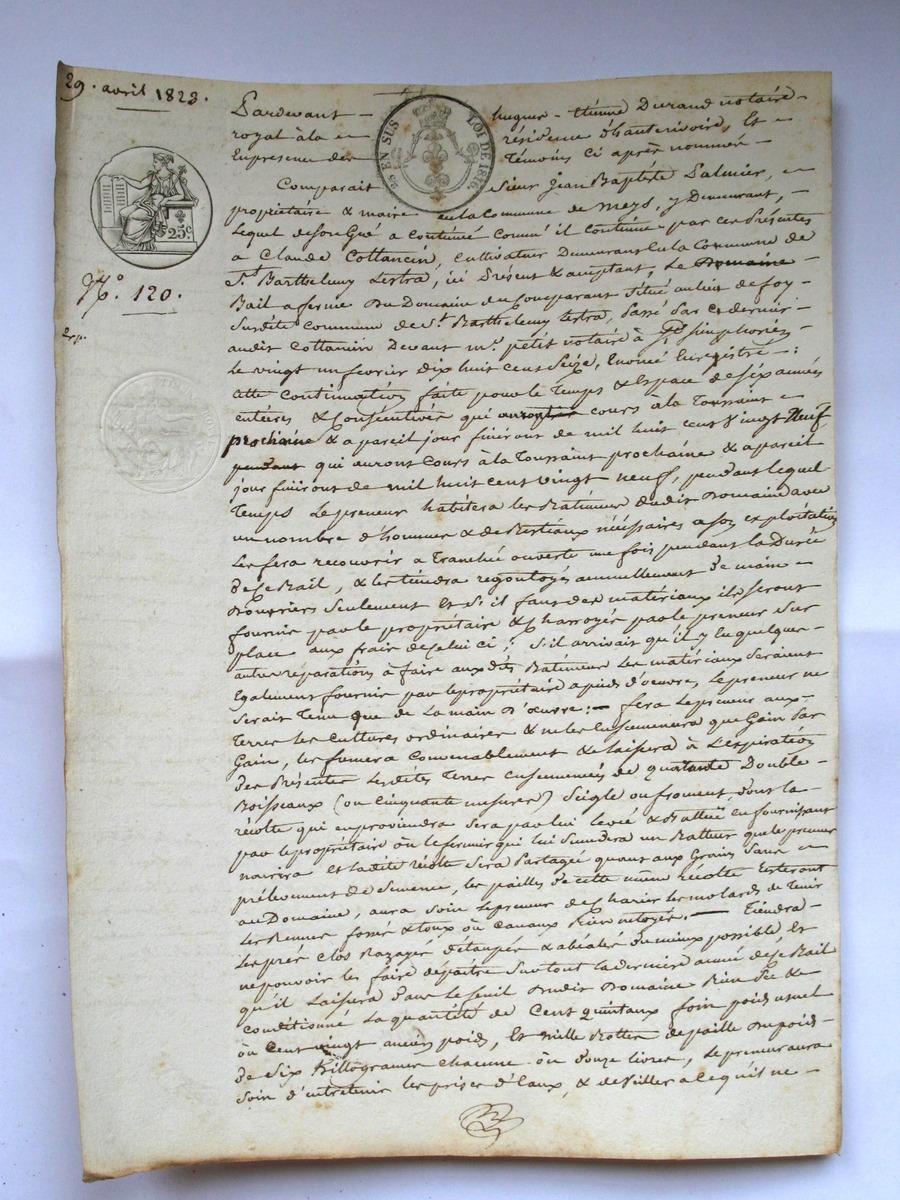 29. avril 1823.
25 EN SUS
LOI DE 1816
25 c.
No. 120.
Exp.
Pardevant hugues-Etienne Durand notaire
royal à la résidence d'hauterivoire, Et
En presence des Témoins ci après nommés
Comparait Sieur Jean Baptiste Palmier,
propriétaire & maire en la Commune de Meys, y Demeurant,
Lequel de son Gré a continué comme il continue par ces Présentes
a Claude Cottancin, cultivateur Demeurant En la Commune de
St. Barthelemy Lestra, ici Présent & acceptant, Le Domaine
Bail a ferme Du Domaine du Comparant situé au lieu de foy
Susdite Commune de St. Barthelemy Lestra, Passé Par ce dernier
audit Cottancin Devant me. petit notaire à St. Simphorien
Le vingt un fevrier dix huit cent Seize, Enoncé Enregistré :
cette continuation faite pour le Temps & Espace de six années
entières & Consécutives qui auront cours à la Toussaint
prochaine & a pareil jour finiront de mil huit cent vingt Neuf
pendant qui auront Cours à la Toussaint prochaine & a pareil
jour finiront de mil huit cent vingt neuf, pendant lequel
Temps Le preneur habitera les Batimens dudit Domaine avec
un nombre d'hommes & de Bestiaux nécéssaires a son exploitation
Les fera recouvrir a Tranché ouverte une fois pendant la Durée
de ce Bail, & les tiendra regoutoyés annuellement De main
D'ouvriers Seulement Et S'il faut des matériaux ils seront
fournis par le propriétaire & Charroyés par le preneur sur
place aux frais de celui ci ; S'il arrivait qu'il y En quelques
autres réparations à faire aux dits Batimens Les matériaux seraient
Egalement fournis par le propriétaire a pieds d'oeuvre, Le preneur ne
serait Tenu que de La main D'œuvre ; fera Le preneur aux
Terres les cultures ordinaires & ne les Ensemencera que Gain par
Gain, les fumera Convenablement & laissera à L'expiration
Des Présentes Lesdites Terres ensemencées de quarante Double
Boisseaux (ou Cinquante mesures) Seigle ou froment dont la
récolte qui en proviendra sera par lui levée & Battue en fournissant
par le propriétaire ou le fermier qui lui Succédera un Batteur que le preneur
nourira Et ladite récolte Sera Partagée quant aux Grains Sans
prélevement de Semence, les pailles de cette même Récolte resteront
au Domaine, aura soin Le preneur de Charier les molards de Tenir
Les fossés & ou canaux Bien netoyés, Tiendra
Les prés clos Razagés d'étaupés & abéalés Du mieux possible, Et
ne pouvoir les faire dépaître Surtout la dernière année de ce Bail
qu'il Laissera dans le fenil Dudit Domaine Bien Sec &
conditionné La quantité de Cent quintaux foin poids usuel
ou Cent vingt anciens poids, Et mille Bottes de paille Du poids
de Six Killogrames chacune ou douze livres, Le preneur aura
Soin d'entretenir les prises d'Eaux, & de Veiller a ce qu'il ne